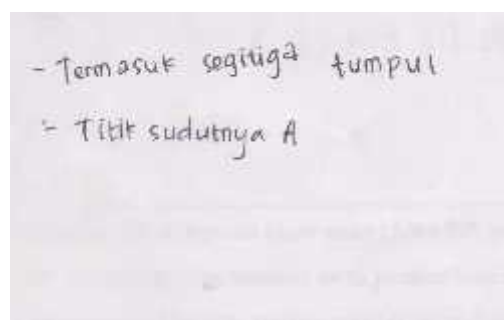 - Termasuk segitiga tumpul
- Titik sudutnya A